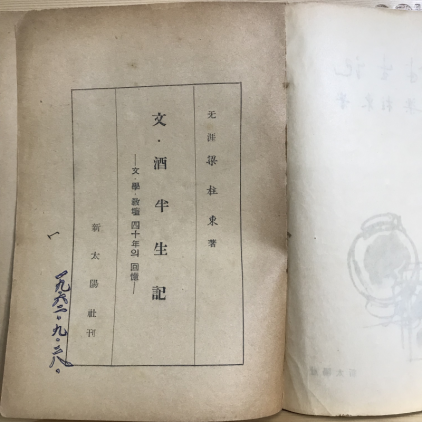 无涯 梁柱東 著
文·酒半生記
—文·學·敎壇 四十年의 回憶—
新太陽社刊
一九六二. 九. 二八.